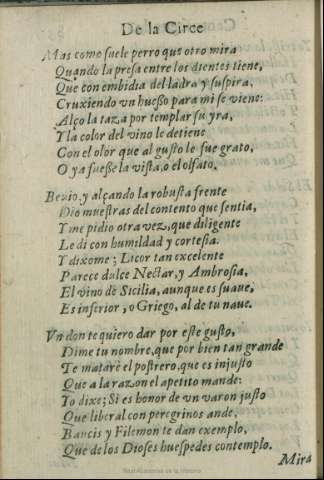 De la Circe
Mas como suele perro que otro mira
Quando la presa entre los dientes tiene,
Que con embidia del ladra y suspira,
Cruxiendo vn huesso para mi se viene:
Alço la taza por templar su yra,
Y la color del vino le detiene
Con el olor que al gusto le fue grato,
O ya fuesse la vista, o el olfato.
Beuio, y alçando la robusta frente
Dio muestras del contento que sentia,
Y me pidio otra vez, que diligente
Le di con humildad y cortesia.
Y dixome; Licor tan excelente
Parece dulce Nectar, y Ambrosia,
El vino de Sicilia, aunque es suaue,
Es inferior, o Griego, al de tu naue.
Vn don te quiero dar por este gusto,
Dime tu nombre, que por bien tan grande
Te matarè el postrero, que es injusto
Que a la razon el apetito mande:
Yo dixe; Si es honor de vn varon justo
Que liberal con peregrinos ande,
Baucis y Filemon te dan exemplo,
Que de los Dioses huespedes contemplo.
Mira
Real Academia de la Historia